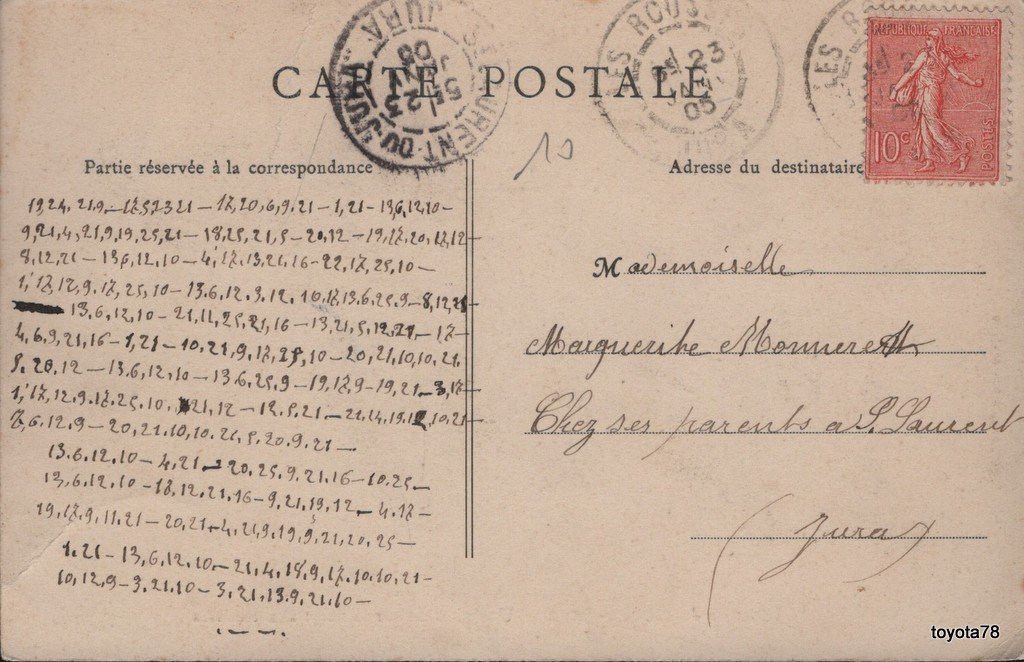 CARTE POSTALE
10
RÉPUBLIQUE FRANÇAISE
10c
POSTES
LES ROUSSES
23
05
ST LAURENT-DU-JURA
JURA
Partie réservée à la correspondance
Adresse du destinataire
19,24,21,9 — 17,5,23,21 — 17,20,6,9,21 — 1,21 — 13,6,12,10 —
9,21,4,21,9,19,25,21 — 18,25,21,5 — 20,12 — 19,17,20,17,12 —
8,12,21 — 13,6,12,10 — 4,'17,13,21,16 — 22,17,25,10 —
1,'17,12,9,17,25,10 — 13,6,12,3,12, 10,17,13,6,25,9 — 8,12,21
13,6,12,10 — 21,11,25,21,16 — 13,21,5,12,21 — 17 —
4,6,9,21,16 — 1,21 — 10,21,9,17,25,10 — 20,21,10,10,21,
5,20,12 — 13,6,12,10 — 13,6,25,9 — 19,17,9 — 19,21 — 3,17 —
1,'17,12,9,17,25,10, 21,12 — 12,5,21 — 21,14,19,12,10,21
7,6,12,9 — 20,21,10,10,21,5,20,9,21 —
13,6,12,10 — 4,21 — 20,25,9,21,16 — 10,25 —
13,6,12,10 — 17,13,21,16 — 9,21,19,12 — 4,17 —
19,17,9,11,21 — 20,21 — 4,21,9,19,9,21,20,25 —
1,21 — 13,6,12,10 — 21,4,18,9,17,10,10,21 —
10,12,9 — 3,21,10 — 3,21,13,9,21,10 —
Mademoiselle
Marguerite Monnerett
Chez ses parents à St Laurent
(Jura)
toyota78